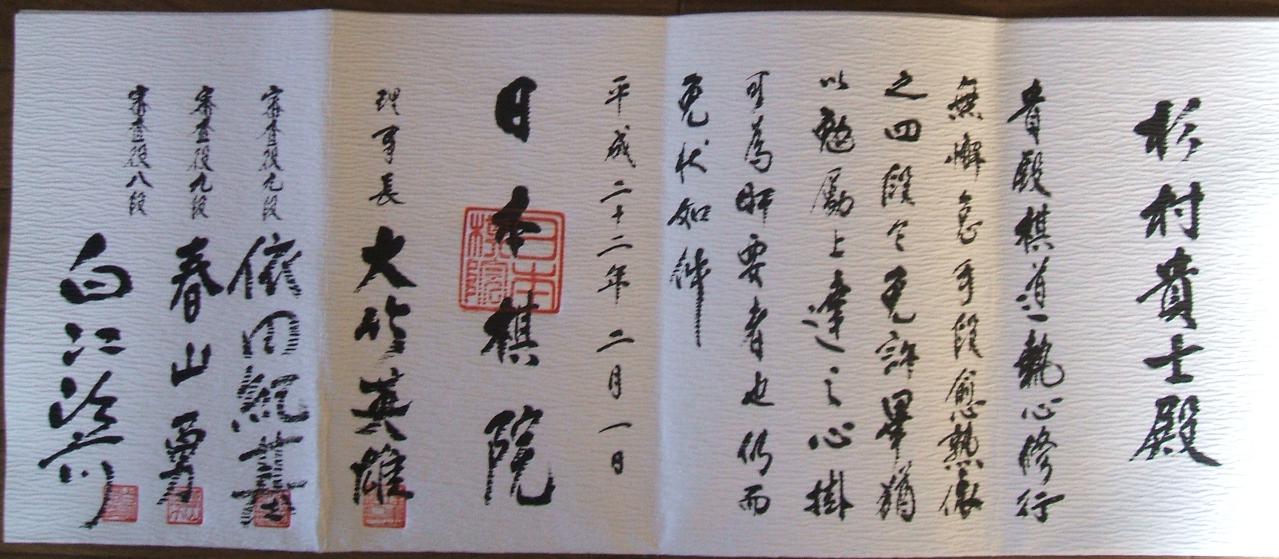 杉村貴士殿
貴殿棋道執心修行
無懈怠手段愈熟依
之四段令免許畢猶
以勉励上達之心掛
可為肝要者也仍而
免状如件
平成二十二年二月一日
日本棋院
日本棋院
理事長 大竹英雄
審査役九段 依田紀基
審査役九段 春山勇
審査役八段 白江治彦